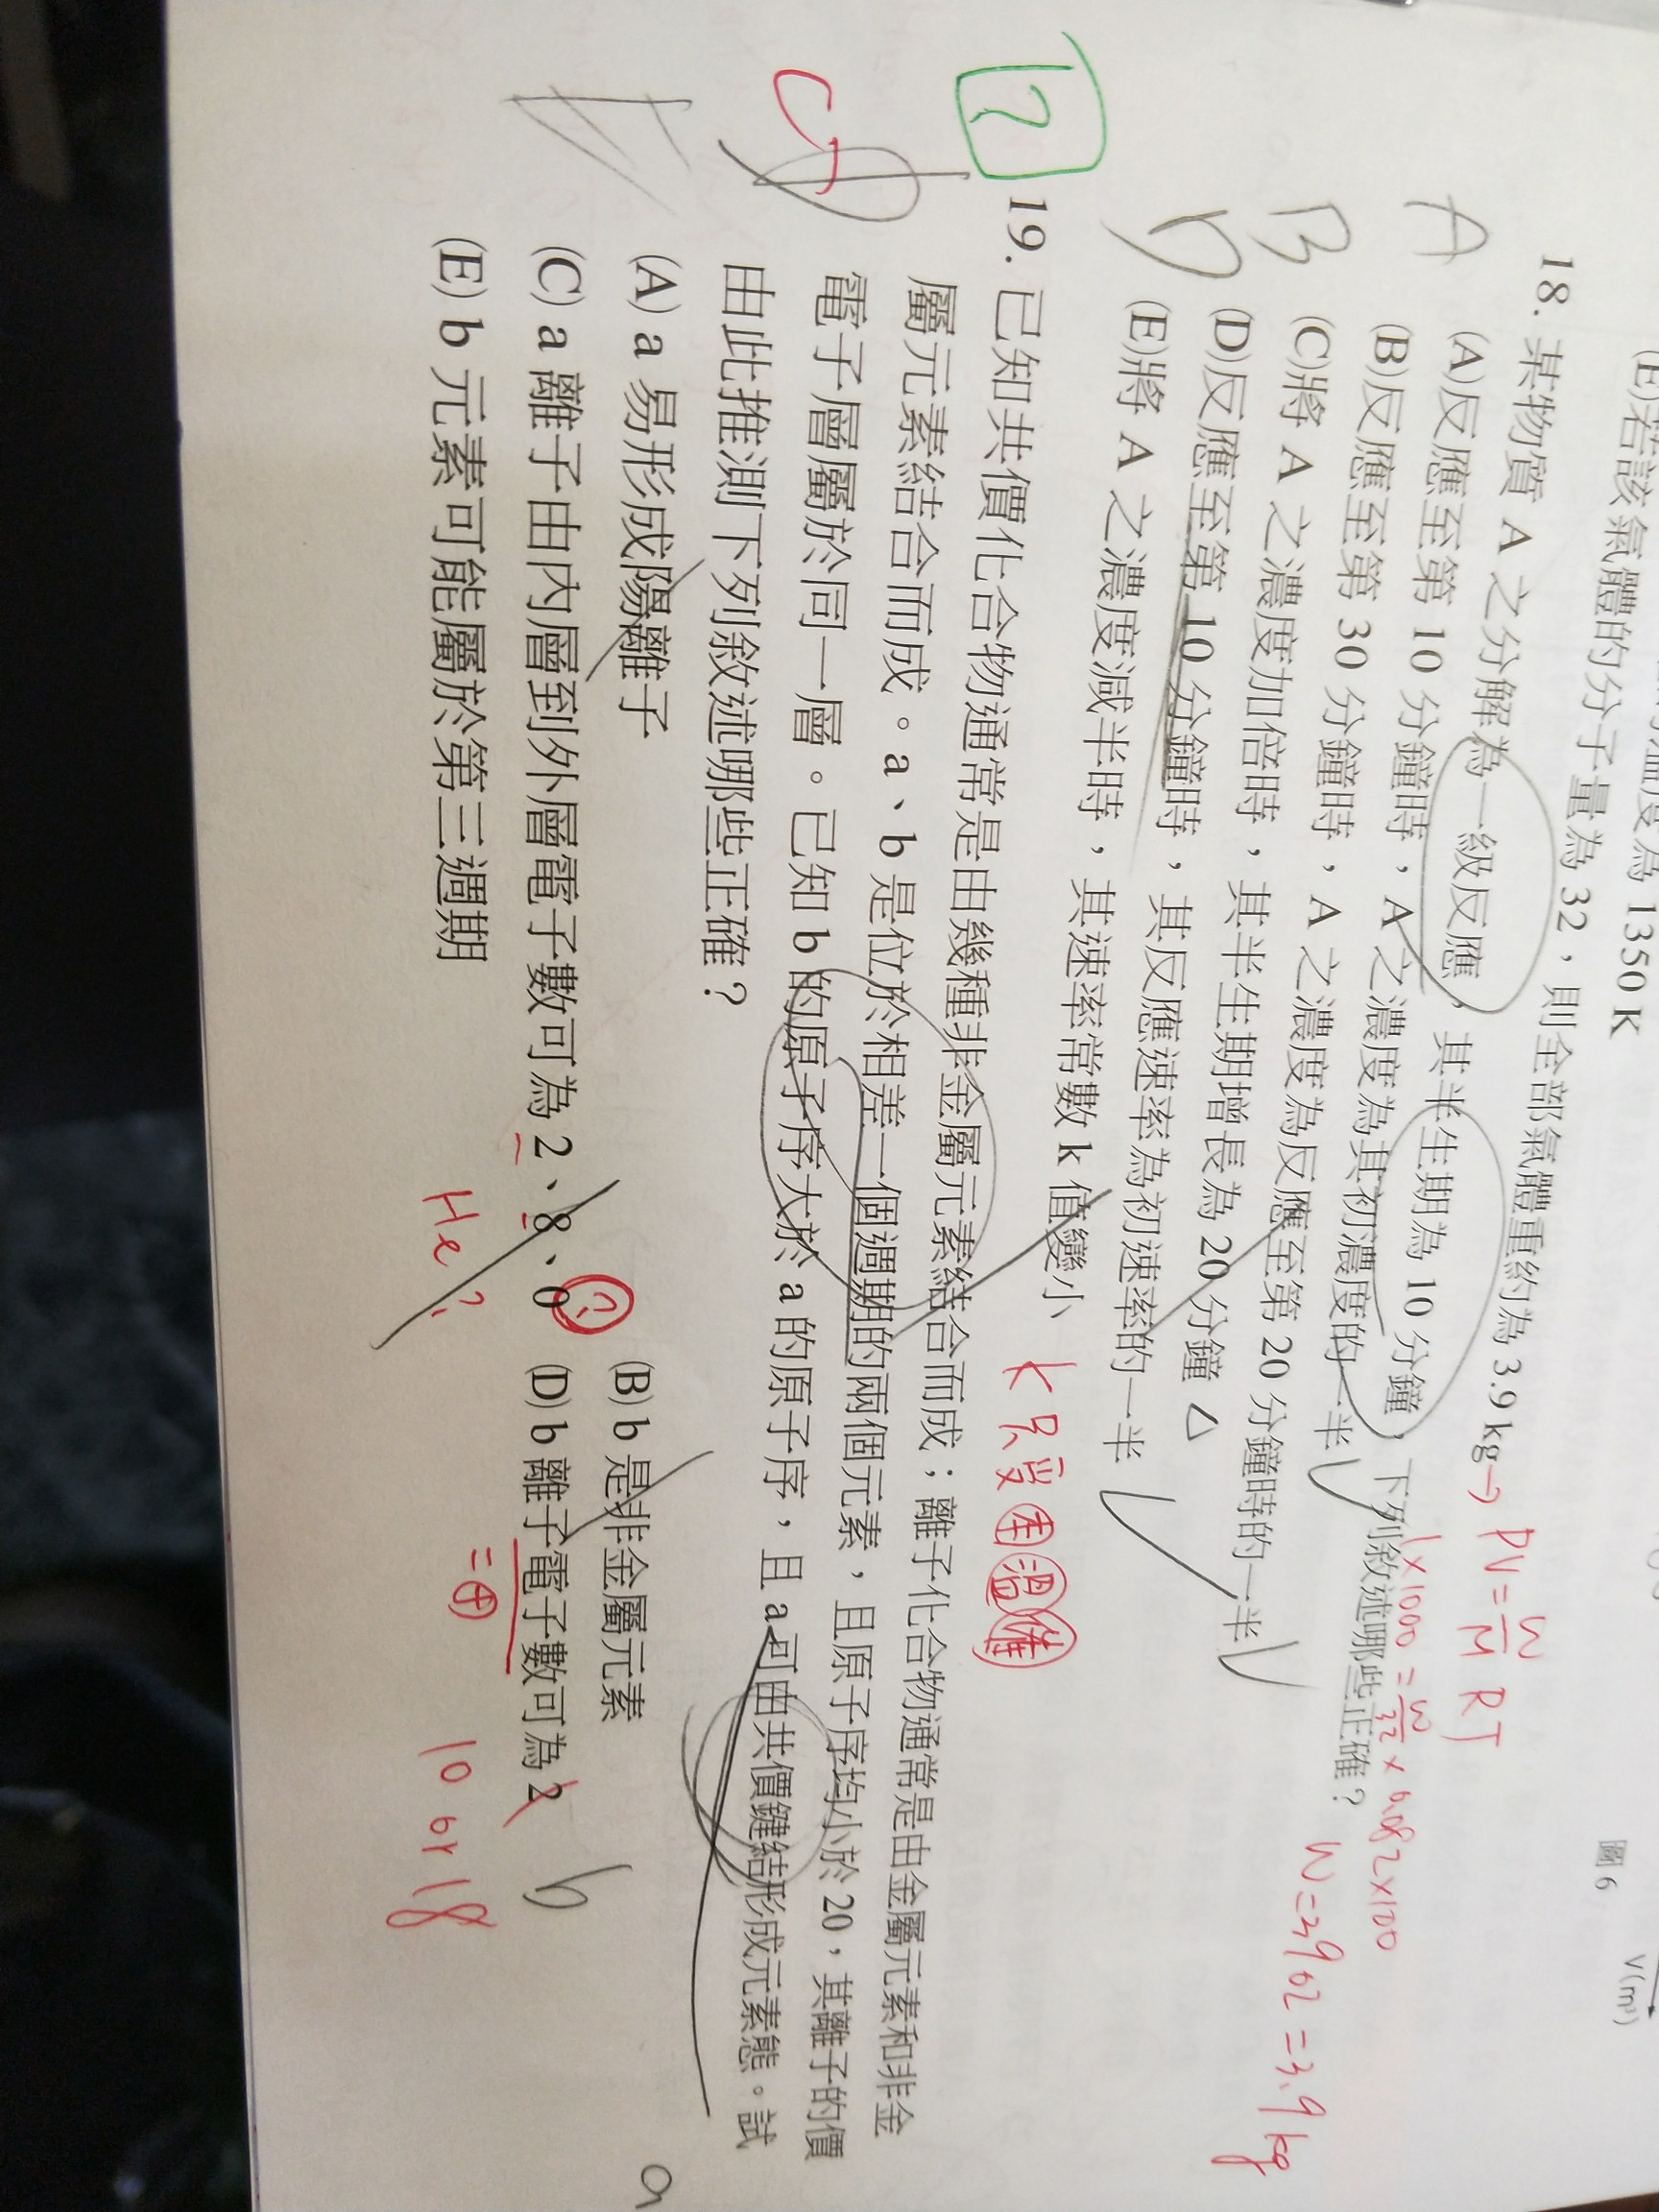 (E)若該氣體的分子量為 32，則全部氣體重約為 3.9 kg→ PV = W/M RT
1×1000 = W/32 × 0.082×100
W = 3902 = 3.9 kg
圖 6
V(m³)
18. 某物質 A 之分解為一級反應，其半生期為 10 分鐘，下列敘述哪些正確？
A
(A)反應至第 10 分鐘時，A 之濃度為其初濃度的一半
B
(B)反應至第 30 分鐘時，A 之濃度為反應至第 20 分鐘時的一半
(C)將 A 之濃度加倍時，其半生期增長為 20 分鐘
D
(D)反應至第 10 分鐘時，其反應速率為初速率的一半
(E)將 A 之濃度減半時，其速率常數 k 值變小
k 只受
?
19. 已知共價化合物通常是由幾種非金屬元素結合而成；離子化合物通常是由金屬元素和非金
屬元素結合而成。a、b 是位於相差一個週期的兩個元素，且原子序均小於 20，其離子的價
電子層屬於同一層。已知 b 的原子序大於 a 的原子序，且 a 可由共價鍵結形成元素態。試
由此推測下列敘述哪些正確？
(A) a 易形成陽離子
(B) b 是非金屬元素
(C) a 離子由內層到外層電子數可為 2、8、0
?
(D) b 離子電子數可為 2
b
(E) b 元素可能屬於第三週期
He?
10 or 18
a